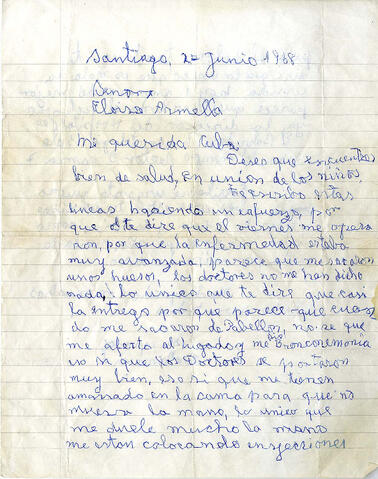 Santiago, 2= Junio 1968
Eloisa Armella
Mi querida
Deseo que encuentres
bien de salud, en union de los niños.
Te escribo estas
lineas haciendo un esfuerzo, por
que te dire que el viernes me opera
ron, por que la enfermedad estaba
muy avanzada, parece que me sacaron
unos huesos, los doctores no me han dicho
nada, lo unico que te dire que casi
la entrego por que parece que cuan
do me sacaron de Pabellon, no se que
me afecto al higado y me Bronconemonia
eso si que los Doctores se portaron
muy bien, eso si que me tienen
amarrado en la cama para que no
mueva la mano, lo unico que
me duele mucho la mano
me estan colocando inyecciones